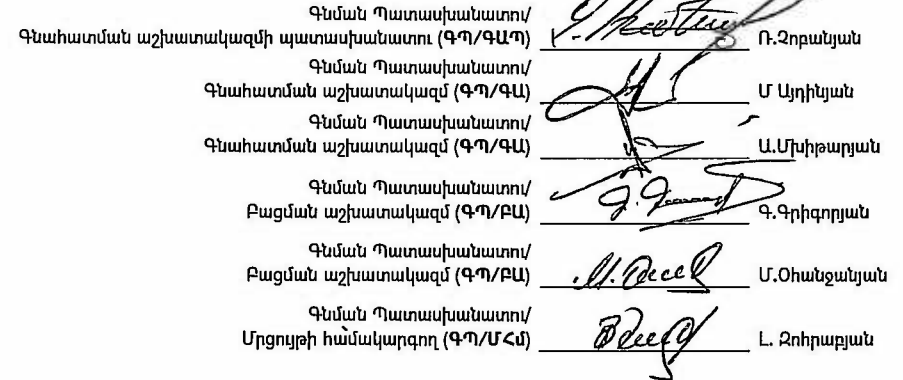 Գնման Պատասխանատու/
Գնահատման աշխատակազմի պատասխանատու (ԳՊ/ԳԱՊ) Ռ.Չոբանյան
Գնման Պատասխանատու/
Գնահատման աշխատակազմ (ԳՊ/ԳԱ) Մ Այդինյան
Գնման Պատասխանատու/
Գնահատման աշխատակազմ (ԳՊ/ԳԱ) Ա.Մխիթարյան
Գնման Պատասխանատու/
Բացման աշխատակազմ (ԳՊ/ԲԱ) Գ.Գրիգորյան
Գնման Պատասխանատու/
Բացման աշխատակազմ (ԳՊ/ԲԱ) Մ.Օհանջանյան
Գնման Պատասխանատու/
Մրցույթի համակարգող (ԳՊ/ՄՀմ) Լ. Զոհրաբյան